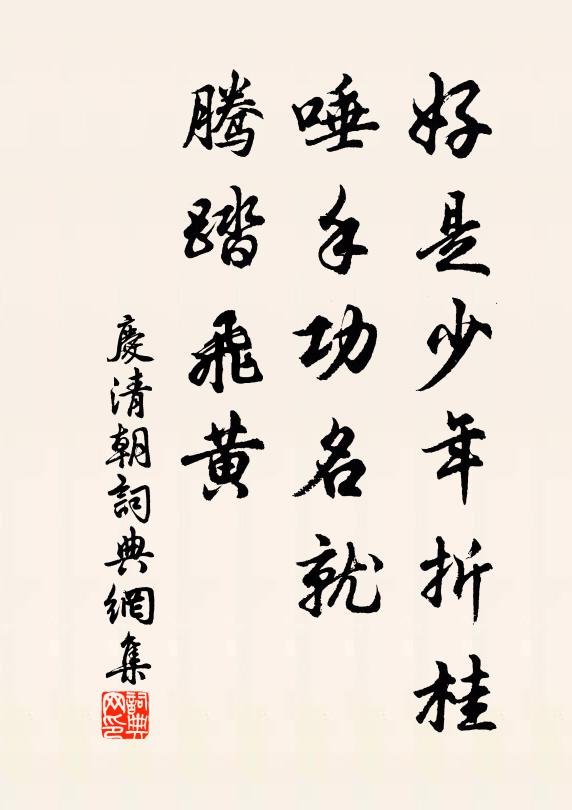 好是少年折桂
唾手功名就
騰踏飛黄
慶清朝詞典網集
詞典网印